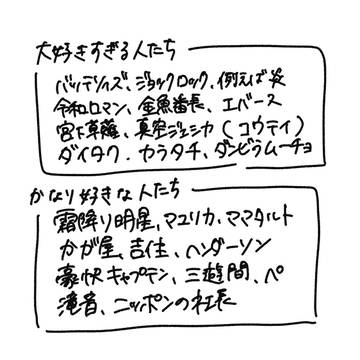 大好きすぎる人たち
バッテリィズ、ジョックロック、例えば炎
令和ロマン、金魚番長、エバース
宮下草薙、真空ジェシカ(コウテイ)
ダイタク、カラタチ、ダンビラムーチョ
かなり好きな人たち
霜降り明星、マユリカ、ママタルト
かが屋、吉住、ヘンダーソン
豪快キャプテン、三遊間、ペ
滝音、ニッポンの社長